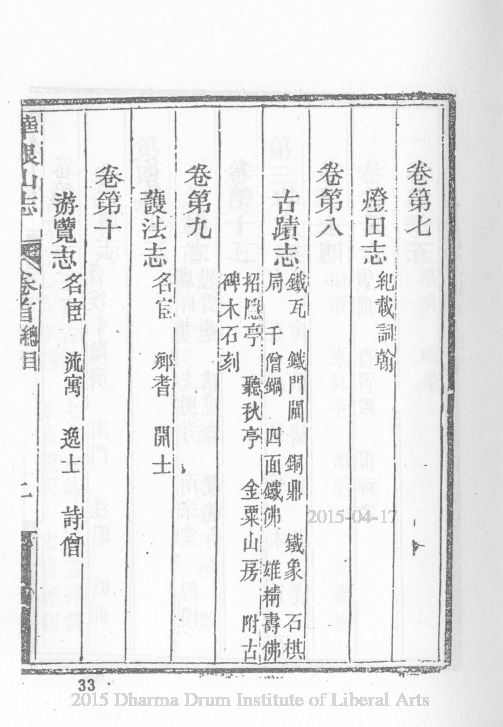 卷第七
燈田志 紀載詞翰
卷第八
古蹟志 鐵瓦 鐵門閫 銅鼎 鐵象 石棋
局 千僧鍋 四面鐵佛 雄精壽佛
招隱亭 聽秋亭 金粟山房 附古
碑木石刻
卷第九
護法志 名宦 鄉耆 開士
卷第十
游覽志 名宦 流寓 逸士 詩僧
華銀山志 卷首 總目
33
2015-04-17
2015 Dharma Drum Institute of Liberal Arts